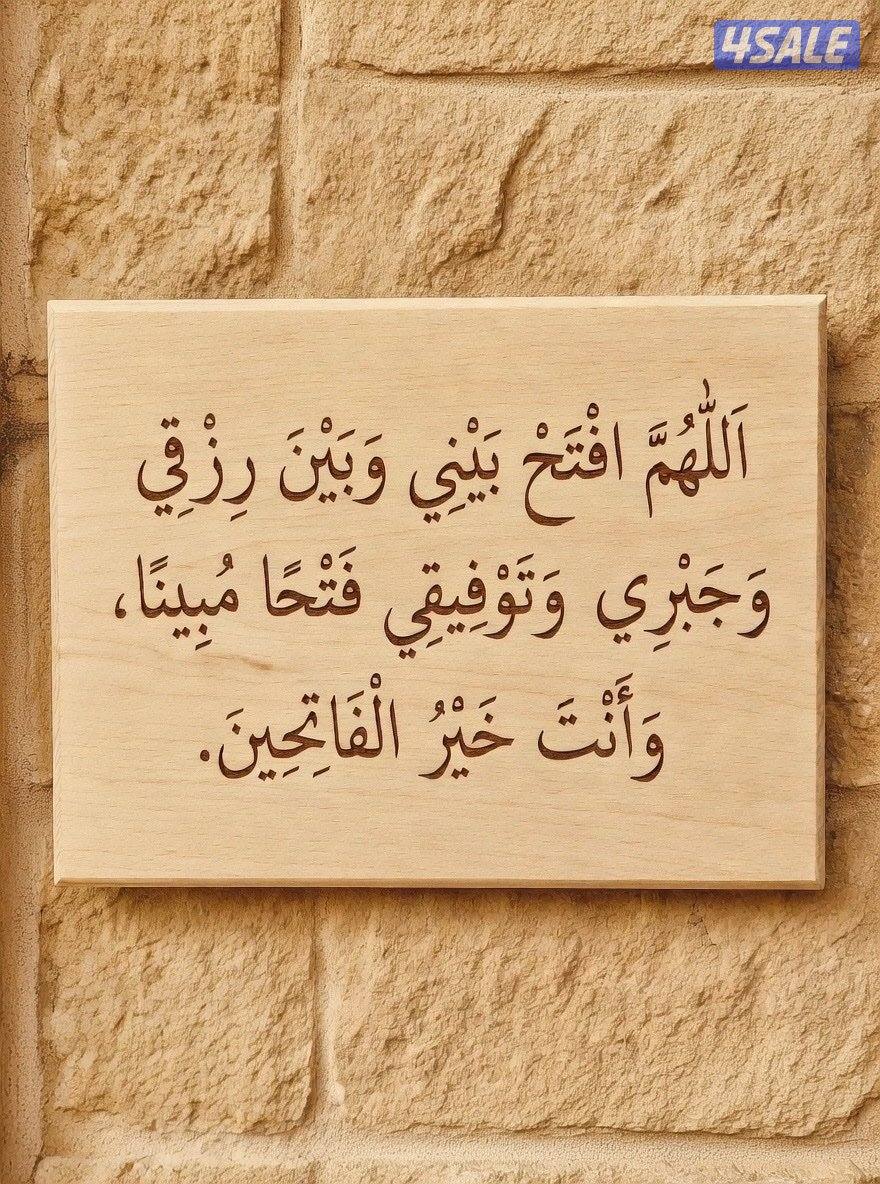 4SALE
اَللّٰهُمَّ افْتَحْ بَيْنِي وَبَيْنَ رِزْقِي
وَجَبْرِي وَتَوْفِيقِي فَتْحًا مُبِينًا،
وَأَنْتَ خَيْرُ الْفَاتِحِينَ.